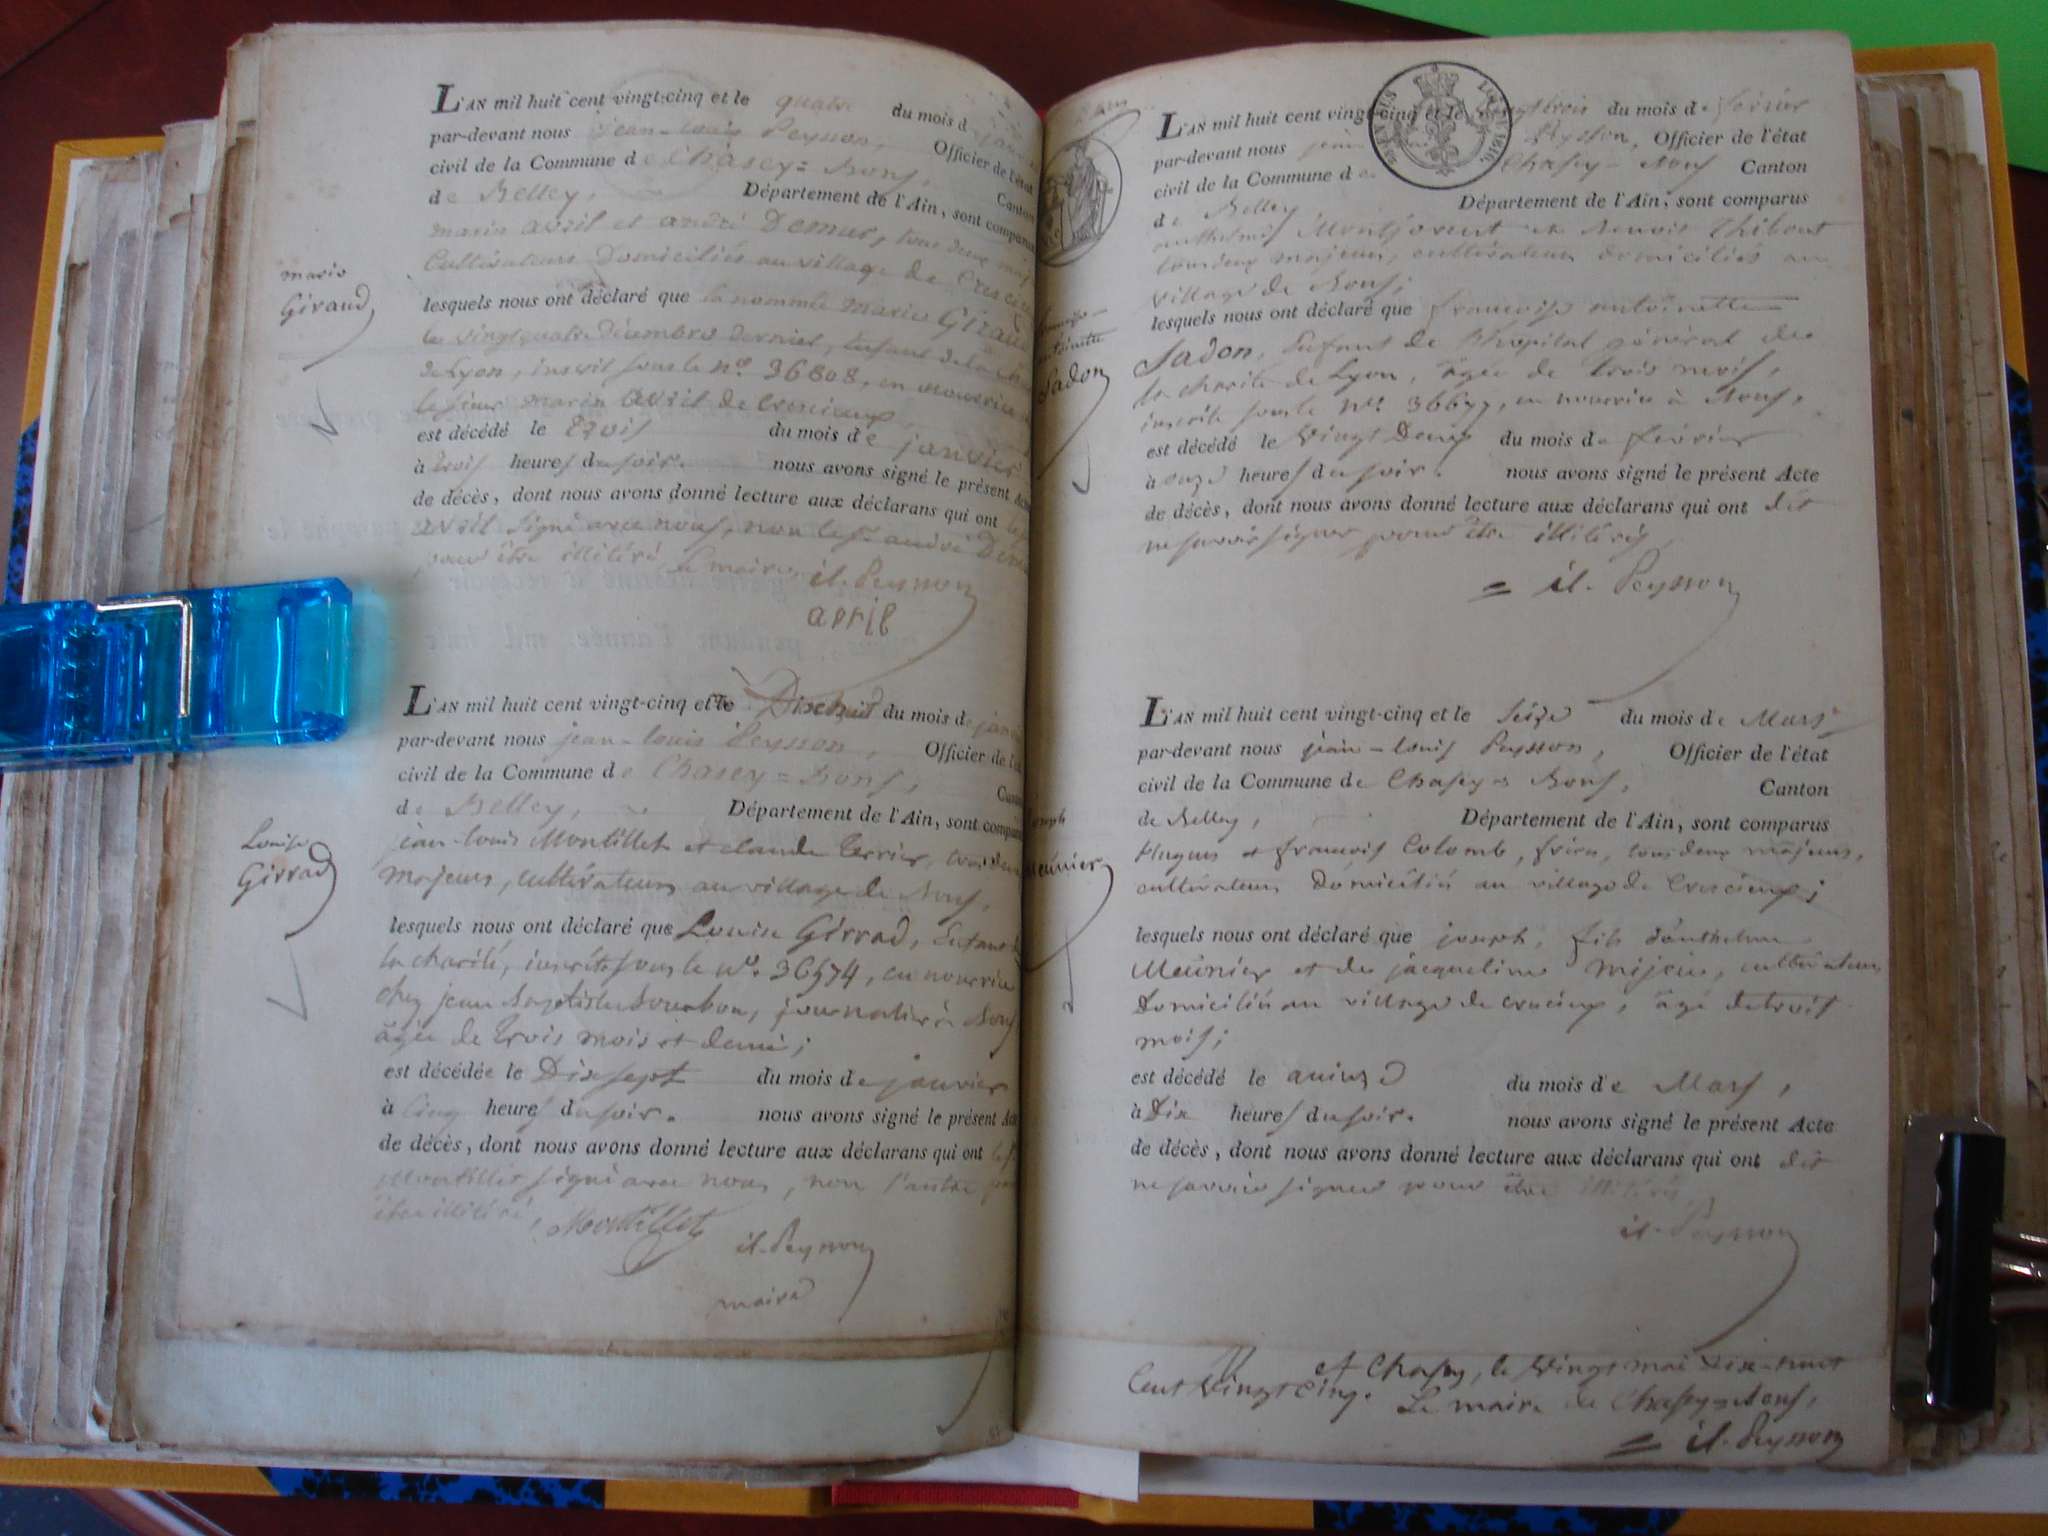 L'AN mil huit cent vingt-cinq et le quatre du mois d
par-devant nous jean-louis Peysson, Officier de l'état
civil de la Commune de Chasey=Bons, Canton
de Belley, Département de l'Ain, sont comparus
marin avril et andré Demur, tous deux maj
Cultivateurs Domiciliés au village de Crescieux
marie
Giraud
lesquels nous ont déclaré que la nommée marie Giraud
le vingtquatre décembre dernier, Enfant de la
de Lyon, inscrit sous le n° 36808, en nourrice
le sieur marin avril de Crescieux,
est décédé le trois du mois de janvier
à trois heures du soir. nous avons signé le présent Acte
de décès, dont nous avons donné lecture aux déclarans qui ont
avril signé avec nous, non le Sr andré Demur
pour être illitéré, Le maire, il. Peysson
april
L'AN mil huit cent vingt-cinq et le Dixehuit du mois de janv
par-devant nous jean-louis Peysson, Officier de l'é
civil de la Commune de Chasey=Bons, Canton
de Belley, Département de l'Ain, sont comparu
jean-louis Montillet et claude Terrier, tous deux
majeurs, cultivateurs au village de Bons,
Louise
Girrad
lesquels nous ont déclaré que Louise Girrad, Enfant
la charité, inscrite sous le n°. 36574, en nourrice
chez jean Baptiste Bourbon, journalier à Bons
âgée de trois mois et demi;
est décédée le Dixsept du mois de janvier
à Cinq heures du soir. nous avons signé le présent Acte
de décès, dont nous avons donné lecture aux déclarans qui ont le S
Montillet signé avec nous, non l'autre pour
être illitéré, Montillet
il. Peysson
maire
L'AN mil huit cent vingt-cinq et le vingttrois du mois de février
par-devant nous jean Peysson, Officier de l'état
civil de la Commune de Chasey=Bons Canton
de Belley Département de l'Ain, sont comparus
anthelmes Montforent et Benoit Thibout
tous deux majeurs, cultivateurs domiciliés au
village de Bons;
antoinette
Sadon
lesquels nous ont déclaré que françoise antoinette
Sadon, Enfant de l'hopital général de
la charité de Lyon, âgée de trois mois,
inscrite sous le n°. 36677, en nourrice à Bons,
est décédé le vingt Deux du mois de février
à onze heures du soir. nous avons signé le présent Acte
de décès, dont nous avons donné lecture aux déclarans qui ont dit
ne savoir signer pour être illitérés,
il. Peysson
L'AN mil huit cent vingt-cinq et le seize du mois de Mars
par-devant nous jean-louis Peysson, Officier de l'état
civil de la Commune de Chasey=Bons, Canton
de Belley, Département de l'Ain, sont comparus
Hugues et françois Colomb, frères, tous deux majeurs,
cultivateurs Domiciliés au village de Crescieux;
joseph
Meunier
lesquels nous ont déclaré que joseph, fils d'anthelme
Meunier et de jacqueline Mijeu, cultivateurs
Domiciliés au village de crecieux, âgé de trois
mois;
est décédé le quinze du mois de Mars,
à Dix heures du soir. nous avons signé le présent Acte
de décès, dont nous avons donné lecture aux déclarans qui ont dit
ne savoir signer pour être illitérés,
il. Peysson
A Chasey, le vingt mai Dixe-huit
Cent Vingt Cinq. Le maire de Chasey=Bons,
il. Peysson